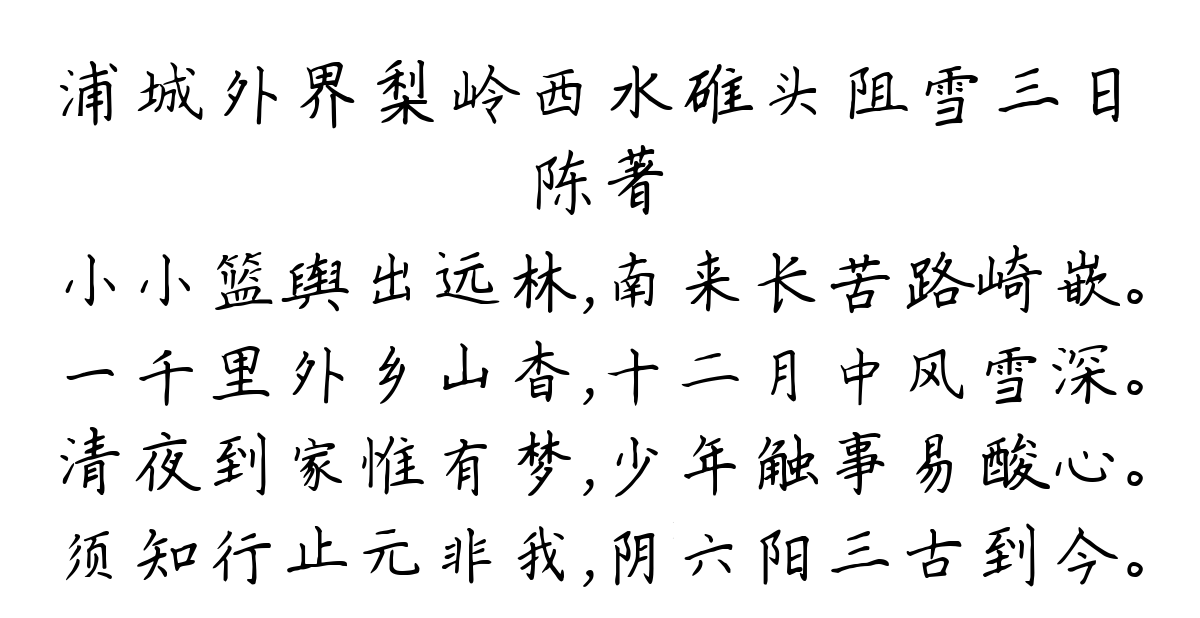 浦城外界梨岭西水碓头阻雪三日
陈著
小小篮舆出远林,南来长苦路崎嵌。
一千里外乡山杳,十二月中风雪深。
清夜到家惟有梦,少年触事易酸心。
须知行止元非我,阴六阳三古到今。